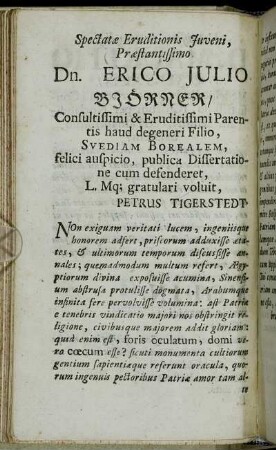 Spectatæ Eruditionis Juveni,
Præstantissimo
Dn. ERICO JULIO
BIÖRNER/
Consultissimi & Eruditissimi Paren-
tis haud degeneri Filio,
SVEDIAM BOREALEM,
felici auspicio, publica Dissertatio-
ne cum defenderet,
L. Mq; gratulari voluit,
PETRUS TIGERSTEDT
NOn exiguam veritati lucem, ingeniisque
honorem adfert, priscorum adduxisse æta-
tes, & ultimorum temporum discussisse an-
nales; quemadmodum multum refert, Ægy-
ptiorum divina exposuisse acumina, Sinensi-
um abstrusa protulisse dogmata, Arabumque
infinita fere pervolvisse volumina: ast Patriæ
e tenebris vindicatio majori nos obstringit re-
ligione, civibusque majorem addit gloriam:
quid enim est, foris oculatum, domi ve-
ro cœcum esse? sicuti monumenta cultiorum
gentium sapientiæque referunt oracula, quo-
rum ingenuis pectoribus Patriæ amor tam al-
te